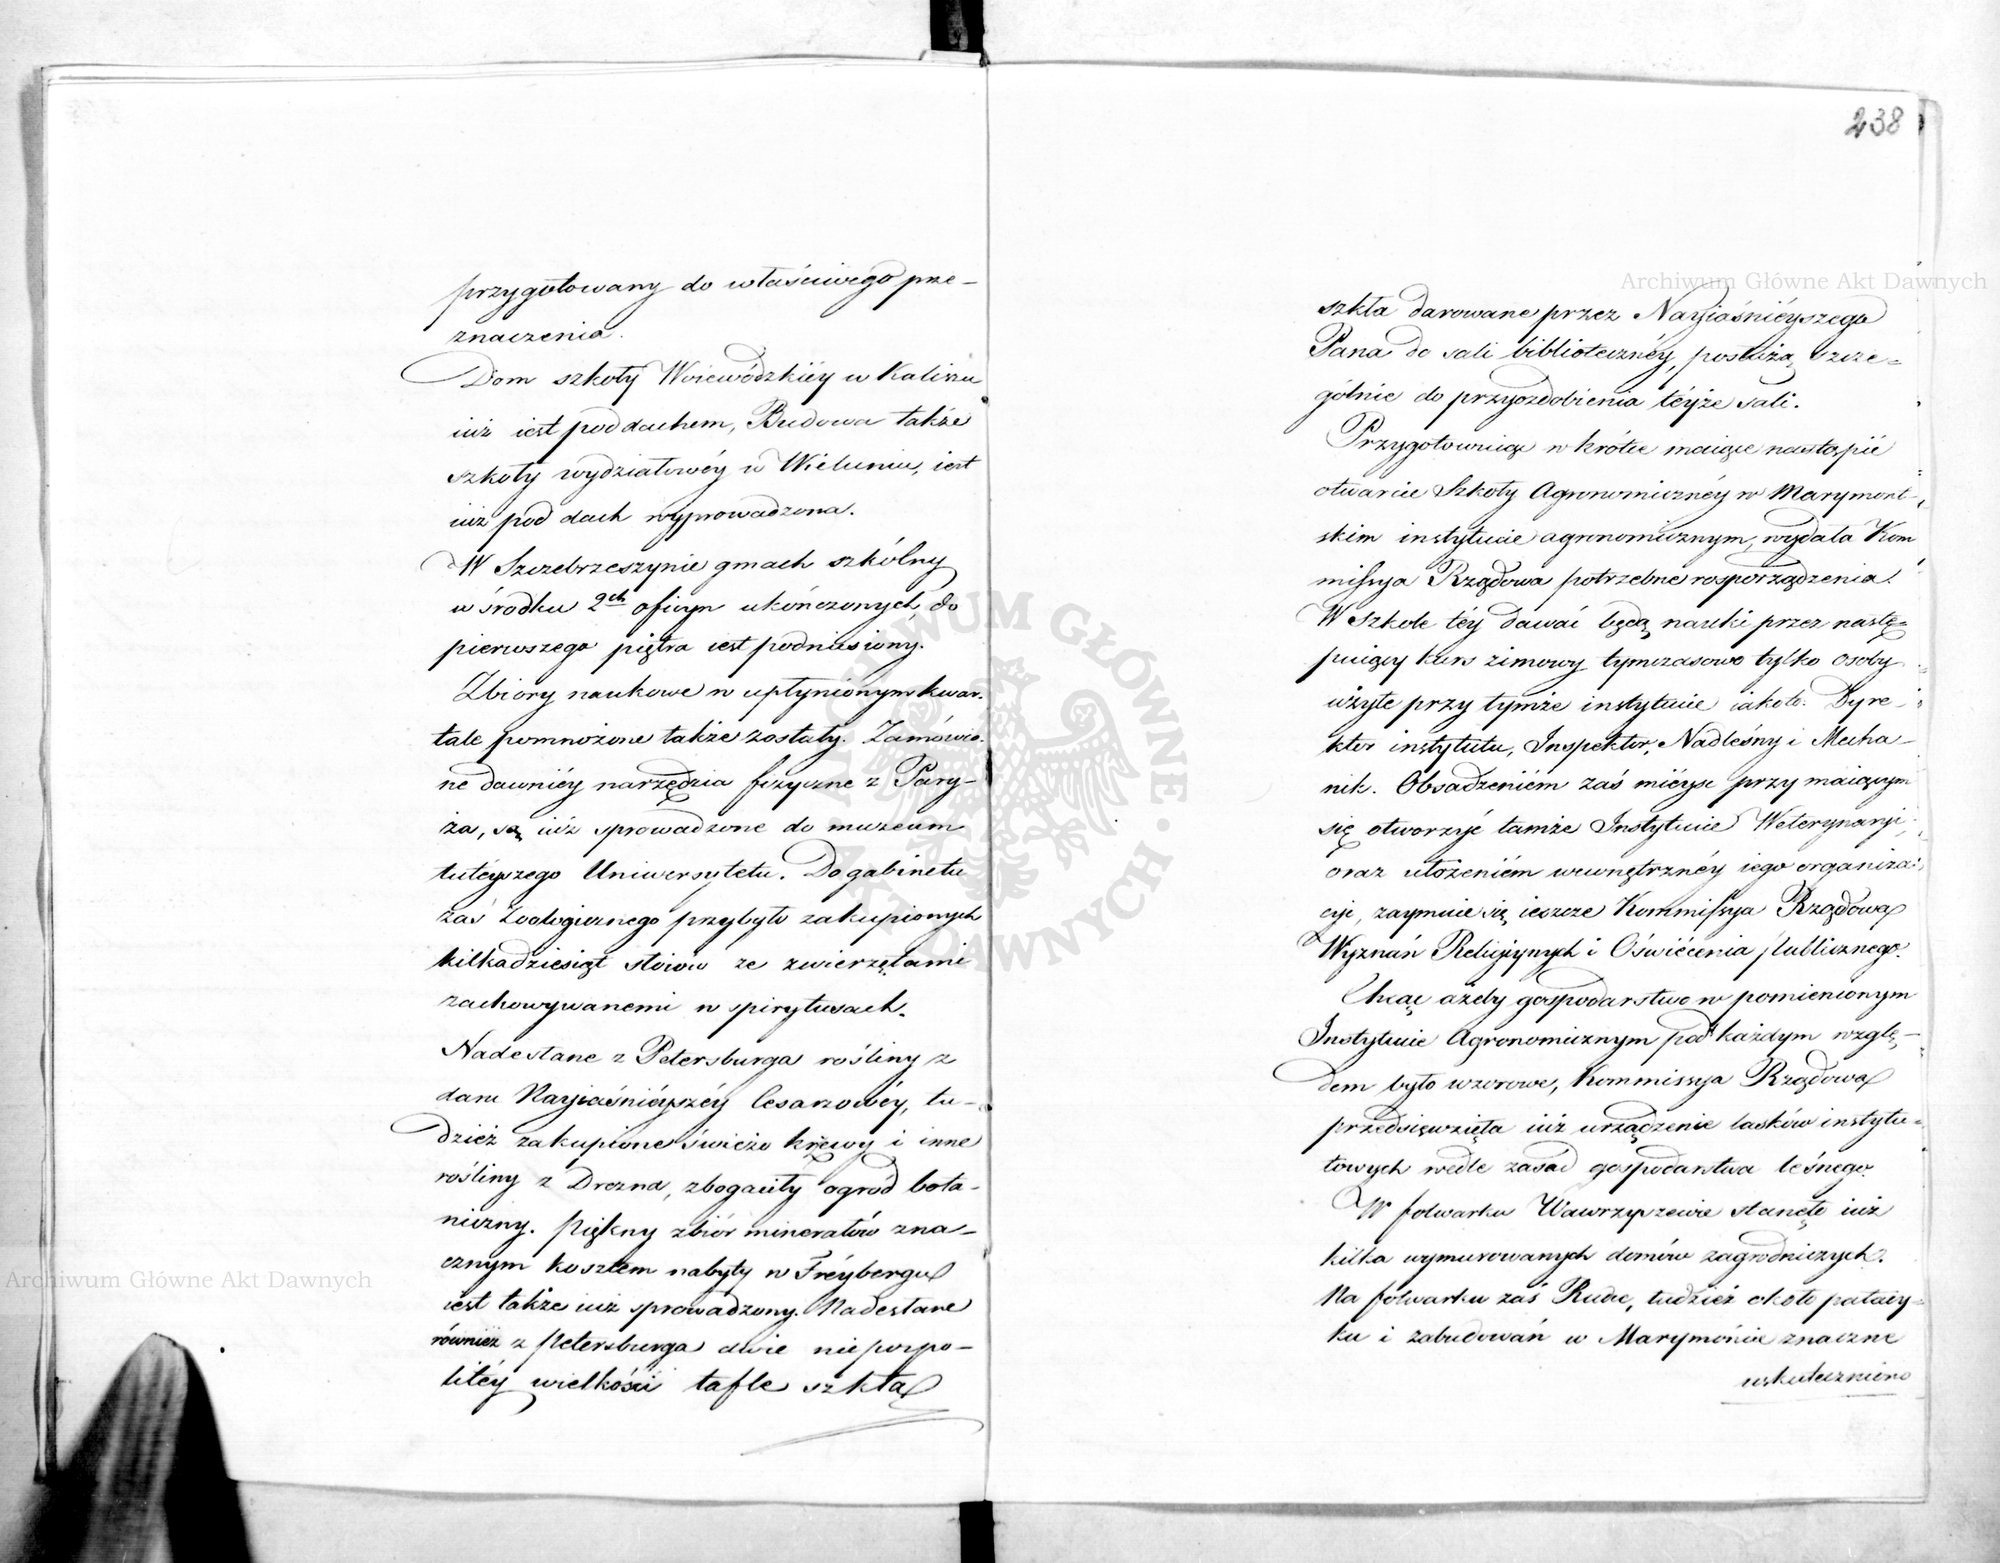 przygotowany do właściwego prze-
znaczenia.
Dom szkoły Woiewódzkiéy w Kaliszu
iuż iest pod dachem, Budowa także
szkoły wydziałowéy w Wieluniu, iest
iuż pod dach wyprowadzona.
W Szczebrzeszynie gmach szkólny
w środku 2ch oficyn ukończonych, do
pierwszego piętra iest podniesiony.
Zbiory naukowe w upłynionym kwar-
tale pomnożone także zostały. Zamówio-
ne dawniéy narzędzia fizyczne z Pary-
ża, są iuż sprowadzone do muzeum
tutéyszego Uniwersytetu. Do gabinetu
zaś Zoologicznego przybyło zakupionych
kilkadziesiąt słoiów ze zwierzętami
zachowywanemi w spirytusach.
Nadesłane z Petersburga rośliny z
daru Nayiaśniéyszéy Cesarzowéy, tu-
dzież zakupione świeżo krzewy i inne
rośliny z Drezna, zbogaciły ogród bota-
niczny. Piękny zbiór minerałów zna-
cznym kosztem nabyty w Fréybergu
iest także iuż sprowadzony. Nadesłane
również z Petersburga dwie niepospo-
litéy wielkości tafle szkła
238
szkła darowane przez Nayiaśniéyszego
Pana do sali bibliotecznéy, posłużą szcze-
gólnie do przyozdobienia téyże sali.
Przygotowuiąc w krótce maiące nastąpić
otwarcie Szkoły Agronomicznéy w Marymont-
skim instytucie agronomicznym, wydała Kom
missya Rządowa potrzebne rosporządzenia.
W Szkole téy dawać będą nauki przez nastę-
puiący kurs zimowy tymczasowo tylko osoby
użyte przy tymże instytucie iakoto: Dyre-
ktor instytutu, Inspektor, Nadleśny i Mecha-
nik. Obsadzeniém zaś mieysc przy maiącym
się otworzyć tamże Instytucie Weterynaryi,
oraz ułożeniém wewnętrznéy iego organiza-
cyi, zaymuie się ieszcze Kommissya Rządowa
Wyznań Religiynych i Oświécenia Publicznego.
Chcąc ażeby gospodarstwo w pomienionym
Instytucie Agronomicznym pod każdym wzglę-
dem było wzorowe, Kommissya Rządowa
przedsięwzięła iuż urządzenie lasków instytu-
towych wedle zasad gospodarstwa leśnego.
W folwarku Wawrzyszewie stanęło iuż
kilka wymurowanych domów zagrodniczych.
Na folwarku zaś Rudce, tudzież około pałacy-
ku i zabudowań w Marymoncie znaczne
uskuteczniono
Archiwum Główne Akt Dawnych
Archiwum Główne Akt Dawnych
ARCHIWUM GŁÓWNE AKT DAWNYCH